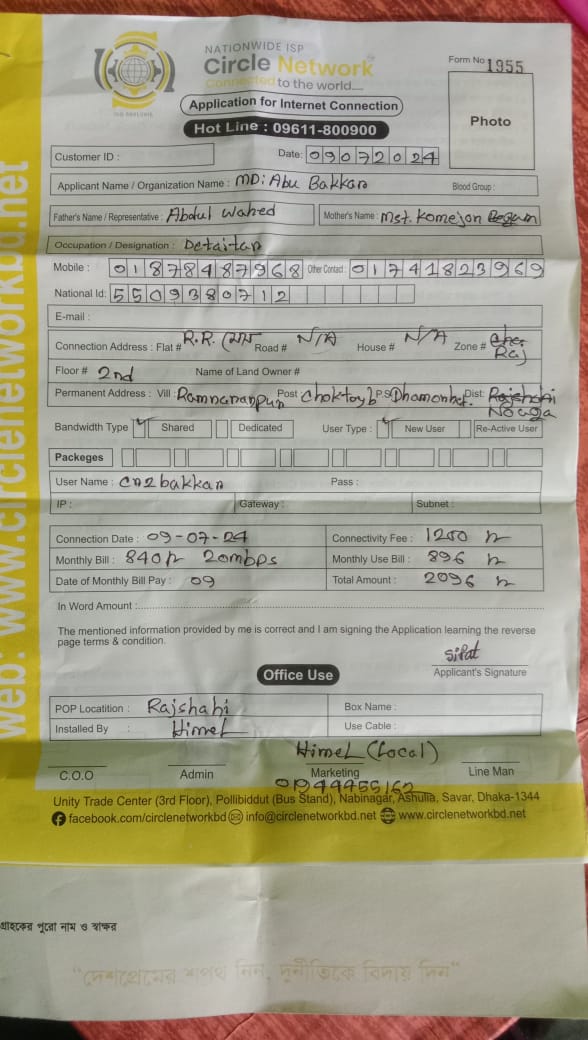 NATIONWIDE ISP
Circle Network
Connected to the world....
Form No 1955
Application for Internet Connection
Hot Line : 09611-800900
Photo
Customer ID :
Date: 09072024
Applicant Name / Organization Name : MD: Abu Bakkar
Blood Group :
Father's Name / Representative : Abdul Wahed Mother's Name : Mst. Komejan Begum
Occupation / Designation :
Mobile : 01878487968 Other Contact : 01741823969
National Id: 5509380712
E-mail :
Connection Address : Flat # R.R. Road # N/A House # N/A Zone # Raj
Floor # 2nd Name of Land Owner #
Permanent Address : Vill : Ramnaranpur Post P.S Dist:
Bandwidth Type Shared Dedicated User Type : New User Re-Active User
Packeges
User Name : cn2bakkar Pass :
IP : Gateway : Subnet :
Connection Date : 09-07-24 Connectivity Fee : 1200
Monthly Bill : 840 20mbps Monthly Use Bill : 896
Date of Monthly Bill Pay : 09 Total Amount : 2096
In Word Amount :
The mentioned information provided by me is correct and I am signing the Application learning the reverse
page terms & condition.
Sifat
Applicant's Signature
Office Use
POP Locatition : Rajshahi Box Name :
Installed By : Himel Use Cable :
Himel (Local)
C.O.O Admin Marketing Line Man
01944955162
Unity Trade Center (3rd Floor), Pollibiddut (Bus Stand), Nabinagar, Ashulia, Savar, Dhaka-1344
facebook.com/circlenetworkbd info@circlenetworkbd.net www.circlenetworkbd.net
web: www.circlenetworkbd.net
গ্রাহকের পুরো নাম ও স্বাক্ষর
"দেশপ্রেমের শপথ নিন, দুর্নীতিকে বিদায় দিন"